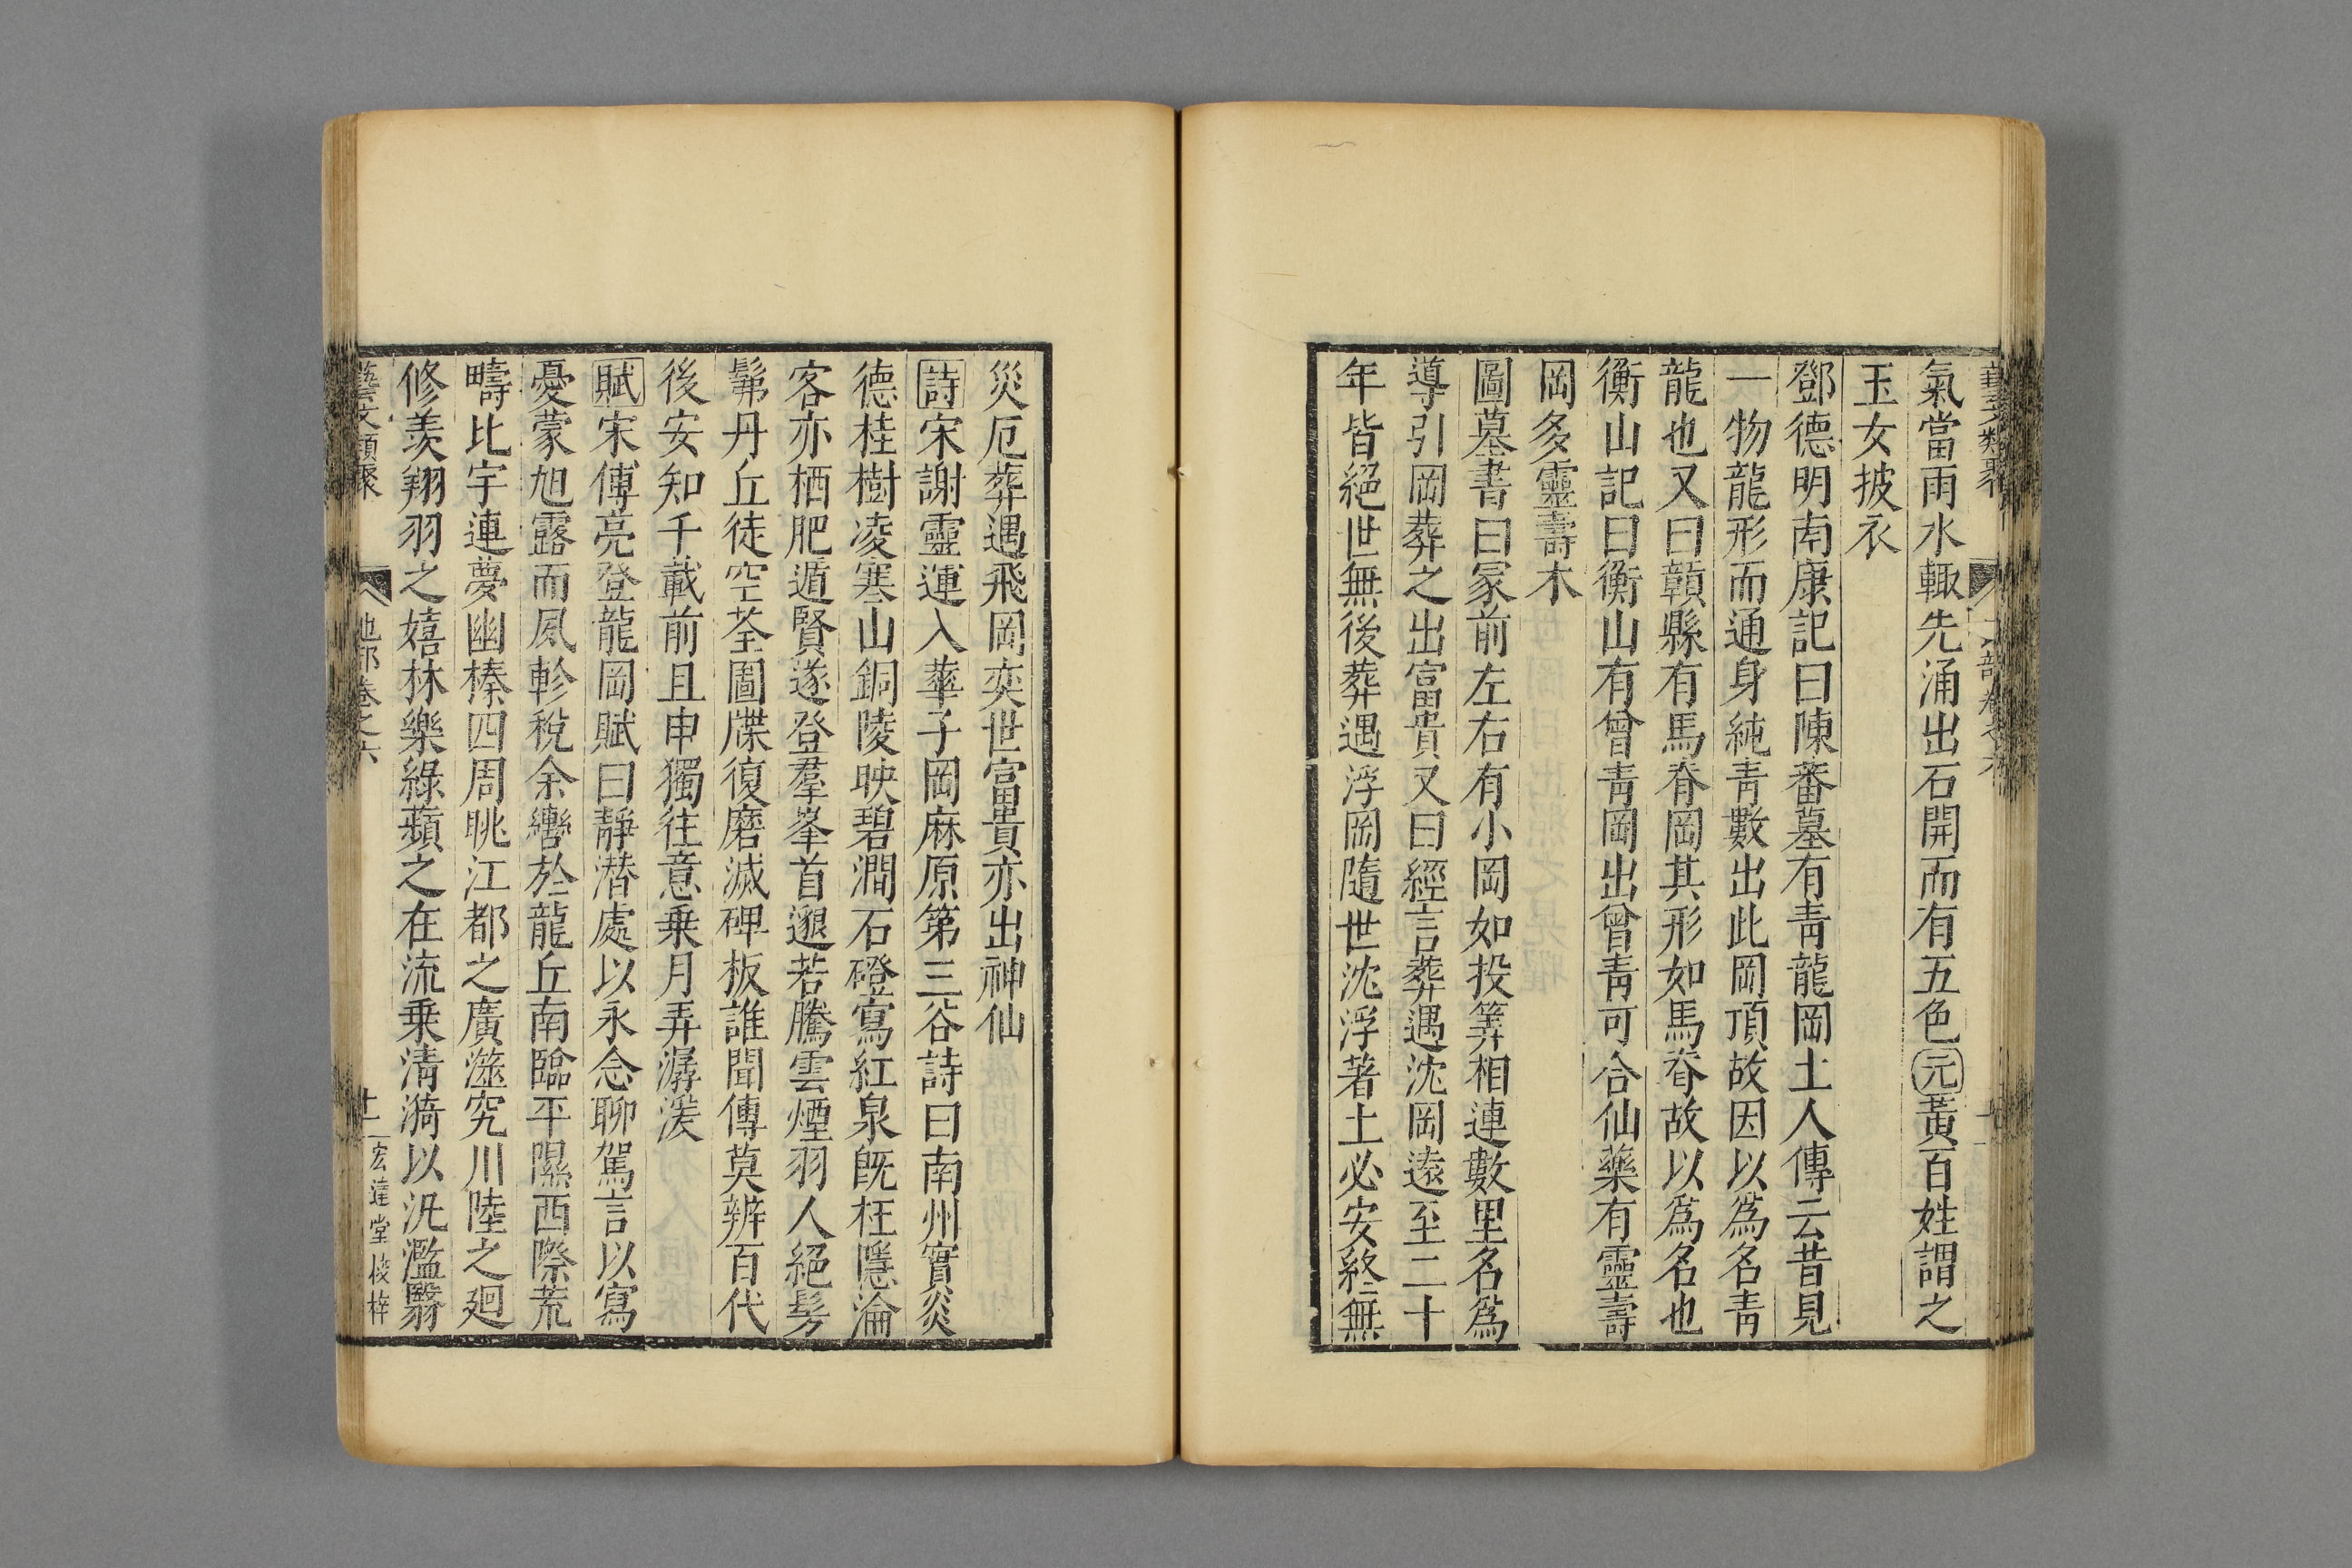 氣當雨水輙先涌出石開而有五色元黃百姓謂之
玉女披衣
鄧德明南康記曰陳蕃墓有青龍岡土人傳云昔見
一物龍形而通身純青數出此岡頂故因以爲名青
龍也又曰贛縣有馬脊岡其形如馬脊故以爲名也
衡山記曰衡山有曾青岡出曾青可合仙藥有靈壽
岡多靈壽木
圖墓書曰冡前左右有小岡如投筭相連數里名爲
導引岡葬之出富貴又曰經言葬遇沈岡遠至二十
年皆絕世無後葬遇浮岡隨世沈浮著土必安終無
災厄葬遇飛岡奕世富貴亦出神仙
詩宋謝靈運入華子岡麻原第三谷詩曰南州實炎
德桂樹凌寒山銅陵映碧澗石磴寫紅泉旣枉隱淪
客亦栖肥遁賢遂登羣峯首邈若騰雲煙羽人絕髣
髴丹丘徒空荃圖牒復磨滅碑板誰聞傳莫辨百代
後安知千載前且申獨往意乗月弄潺湲
賦宋傅亮登龍岡賦曰靜潜處以永念聊駕言以寫
憂蒙旭露而夙軫稅余轡於龍丘南臨平隰西際荒
疇比宇連甍幽榛四周眺江都之廣澨究川陸之廻
修羨翔羽之嬉林樂綠蘋之在流乗清漪以汎濫翳
藝文類聚
地部卷之六
宏達堂校梓